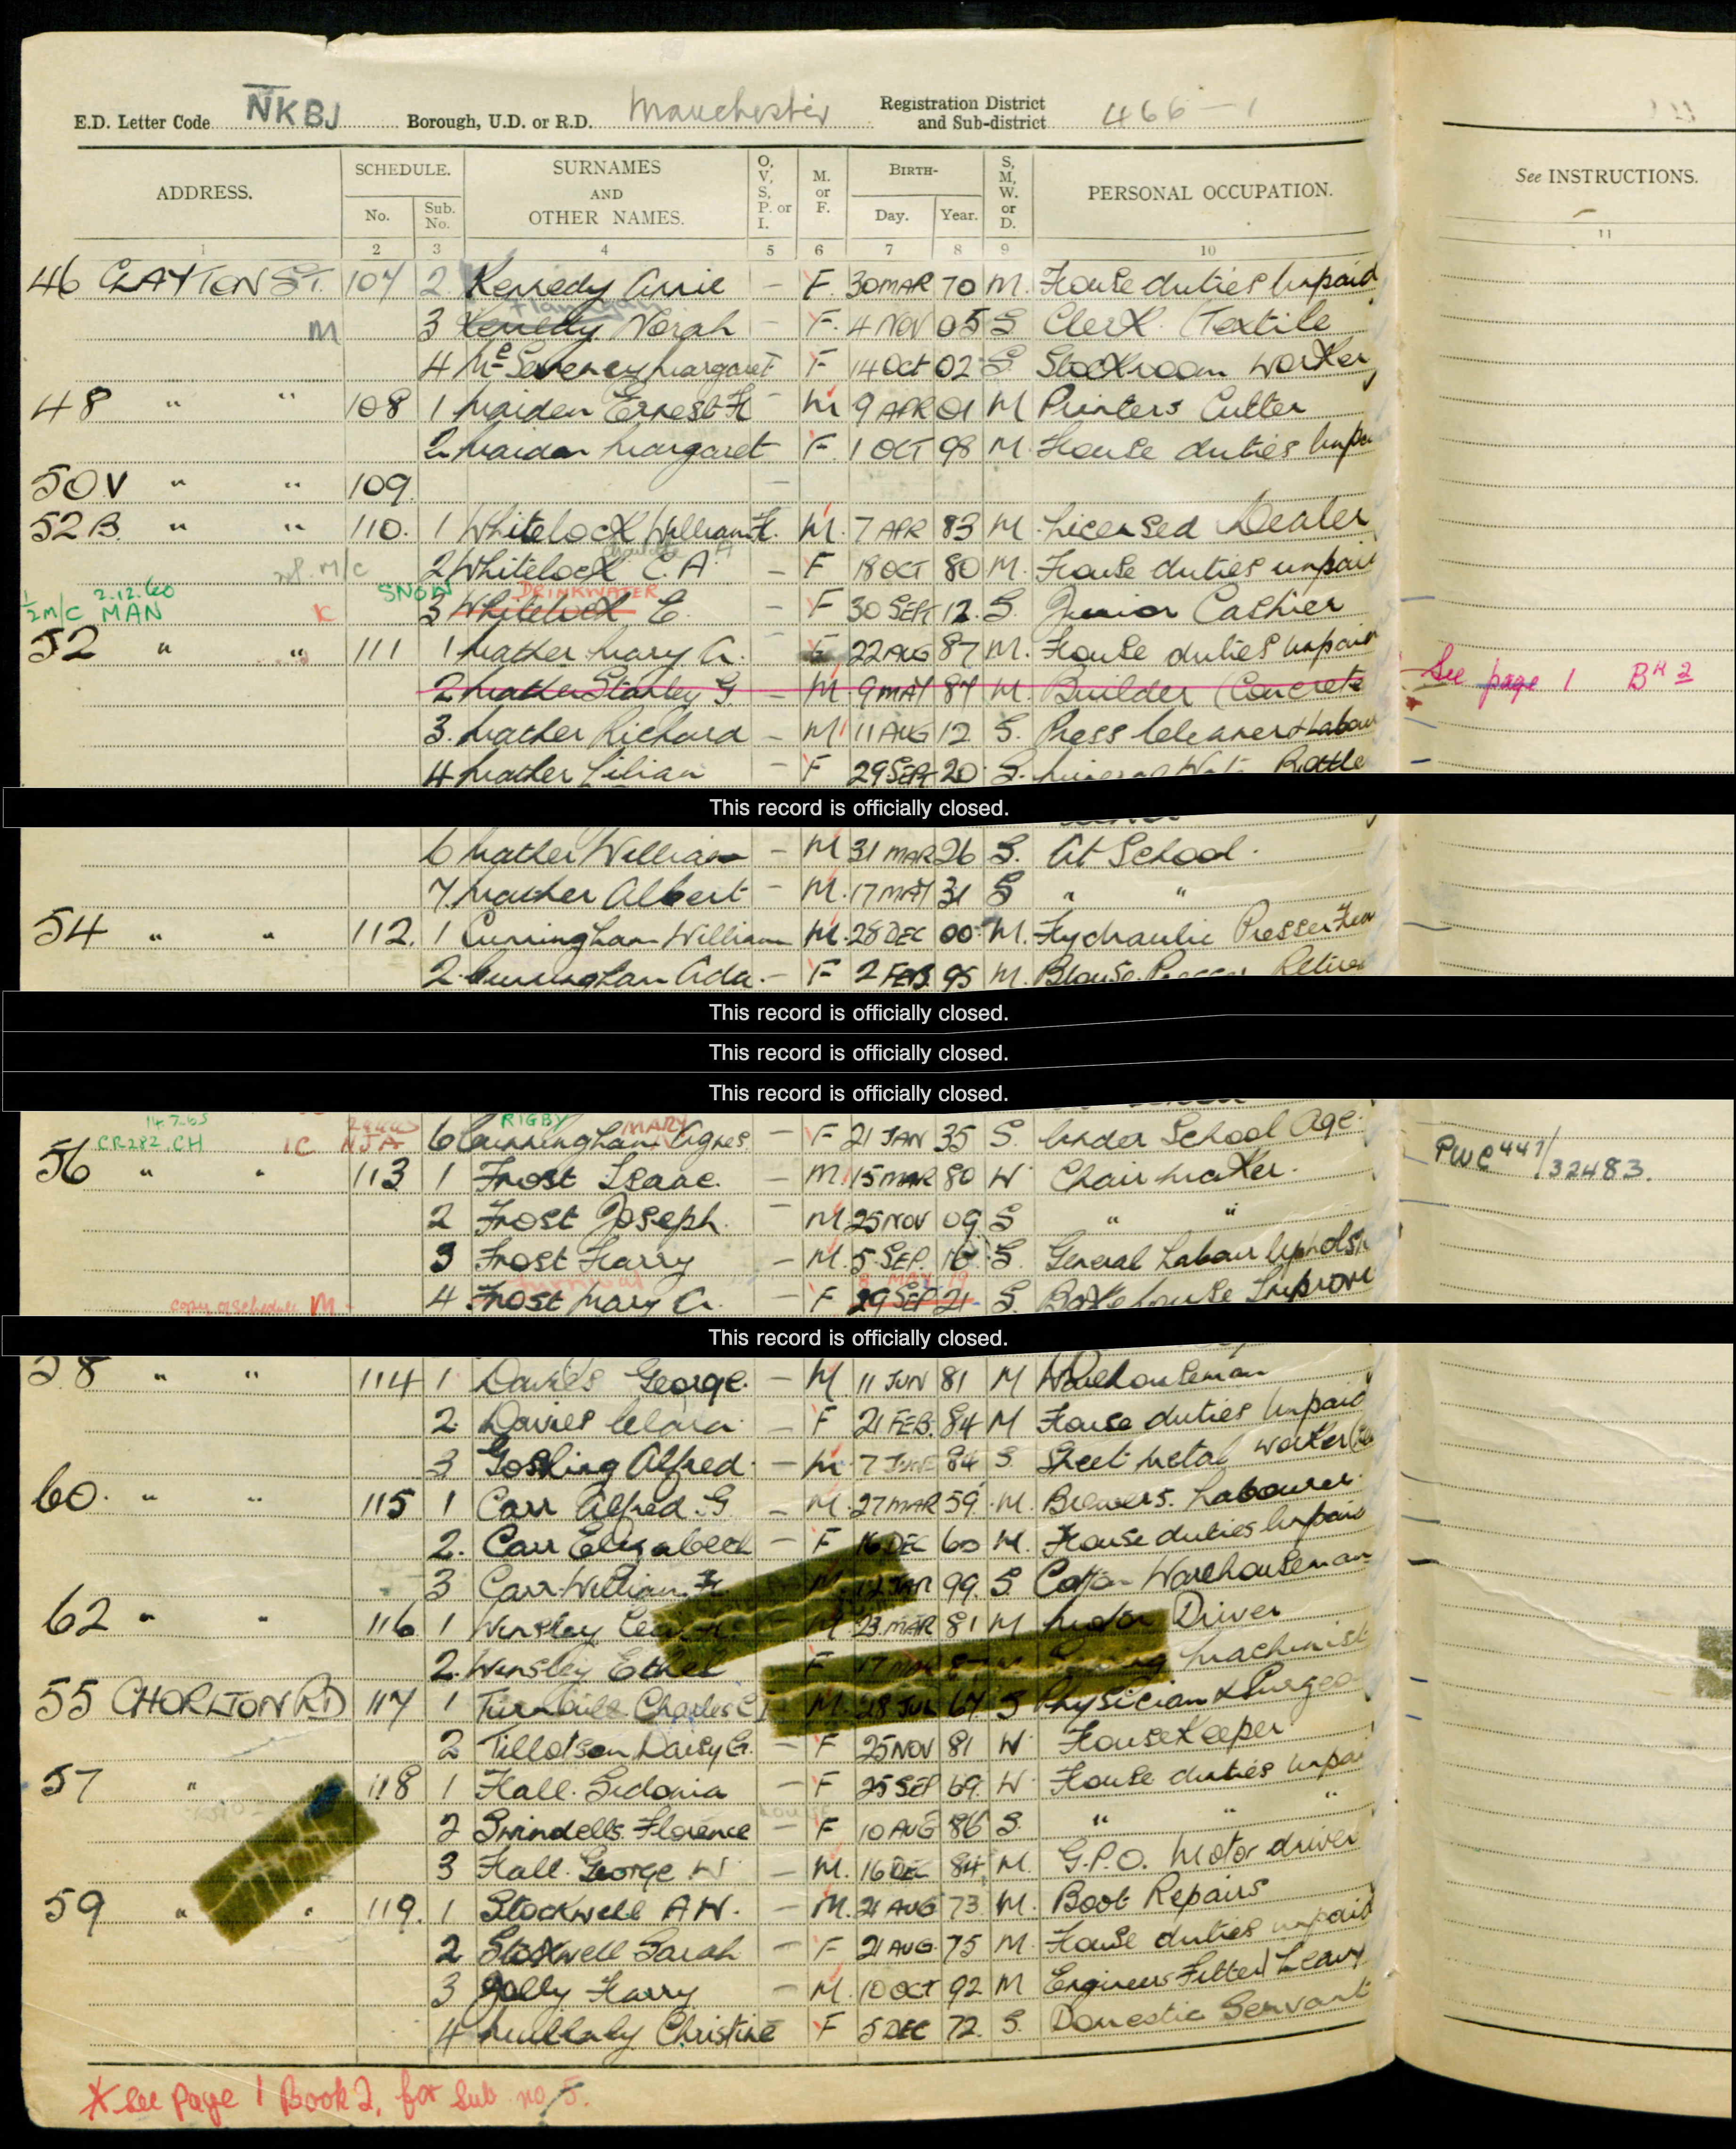 E.D. Letter Code NKBJ Borough, U.D. or R.D. Manchester Registration District and Sub-district 466 - 1
ADDRESS. SCHEDULE. No. Sub. No. SURNAMES AND OTHER NAMES. O, V, S, P. or I. M. or F. BIRTH- Day. Year. S, M, W. or D. PERSONAL OCCUPATION. See INSTRUCTIONS.
1 2 3 4 5 6 7 8 9 10 11
46 CLAYTON ST. 107 2 Kennedy Annie - F. 30 MAR 70 M. House duties Unpaid
Flannigan
M 3 Kennedy Norah - F. 4 NOV 05 S Clerk (Textile
4 Margaret F 14 Oct 02 S Stockroom Worker
48 " " 108 1 Maiden Ernest H - M 9 APR 01 M Printers Cutter
2 Maiden Margaret - F. 1 OCT 98 M. House duties Unpa
50V " " 109. -
52B. " " 110. 1 Whitelock William H. M. 7 APR 83 M. Licensed Dealer
2 Whitelock C. A. - F 18 OCT 80 M. House duties unpaid
2.12.60 SNOW DRINKWATER
1/2 M/C MAN K 3 Whitelock E. - F 30 SEPT 12. S. Junior Cashier
52 " " 111 1 Mather Mary A. F 22 AUG 87 M. House duties unpaid
2 Mather Stanley G. - M 9 MAY 87 M. Builder (Concrete See page 1 Bk 2
3. Mather Richard - M 11 AUG 12 S. Press Cleaner & Labour
4 Mather Lilian - F 29 SEP 20 S. Mineral Wat Bottle
This record is officially closed.
6 Mather William - M 31 MAR 26 S. At School.
7 Mather Albert - M. 17 MAY 31 S " "
54 " " 112. 1 Cunningham William M. 28 DEC 00 M. Hydraulic Presser
2. Cunningham Ada. - F 2 FEB. 95 M. Blouse Presser Retired
This record is officially closed.
This record is officially closed.
This record is officially closed.
14.7.65 RIGBY MARY
CR282.CH IC NJA 6 Cunningham Agnes - F 21 JAN 35 S. Under School Age.
56 " " 113 1 Frost Isaac. - M. 15 MAR 80 W Chair Maker. PWC 447/32483.
2 Frost Joseph. - M. 25 NOV 09 S " "
3 Frost Harry - M. 5 SEP. 16 S. General Labour Upholst
Furnival 8 MAY 19
copy of schedule M. 4 Frost Mary A. - F 29 SEP 21 S. House Improve
This record is officially closed.
58 " " 114 1 Davies George. - M. 11 JUN 81 M Warehouseman
2. Davies Clara - F 21 FEB. 84 M House duties Unpaid
3 Gosling Alfred. - M. 7 JUNE 84 S. Sheet Metal Worker
60. " " 115 1 Carr Alfred. G - M. 27 MAR 59. M. Brewers. Labourer.
2. Carr Elizabeth - F 16 DEC 60 M. House duties Unpaid
3 Carr William H. M. 12 JAN 99. S. Cotton Warehouseman
62 " " 116 1 Wensley M 23 MAR 81 M Motor Driver
2. Wensley Ethel F 17 Sewing Machinist
55 CHORLTON RD 117 1 Turnbull Charles C J M. 28 JUL 67 S Physician & Surgeo
2 Tillotson Daisy G. - F 25 NOV 81 W. Housekeeper
57 " 118 1 Hall. Sidonia - F 25 SEP 69. W House duties unpai
2 Swindells Florence Louise - F 10 AUG 86 S. " " "
3 Hall. George W - M. 16 DEC 84 M. G.P.O. Motor driver
59 " " 119. 1 Stockwell A W. - M. 21 AUG 73. M. Boot Repairs
2 Stockwell Sarah - F 21 AUG. 75 M. House duties unpaid
3 Jolly Harry - M. 10 OCT 92 M Engineers Fitter Heavy
4 Mullaly Christine F 5 DEC 72. S. Domestic Servant
* See Page 1 Book 2. for Sub no 5.